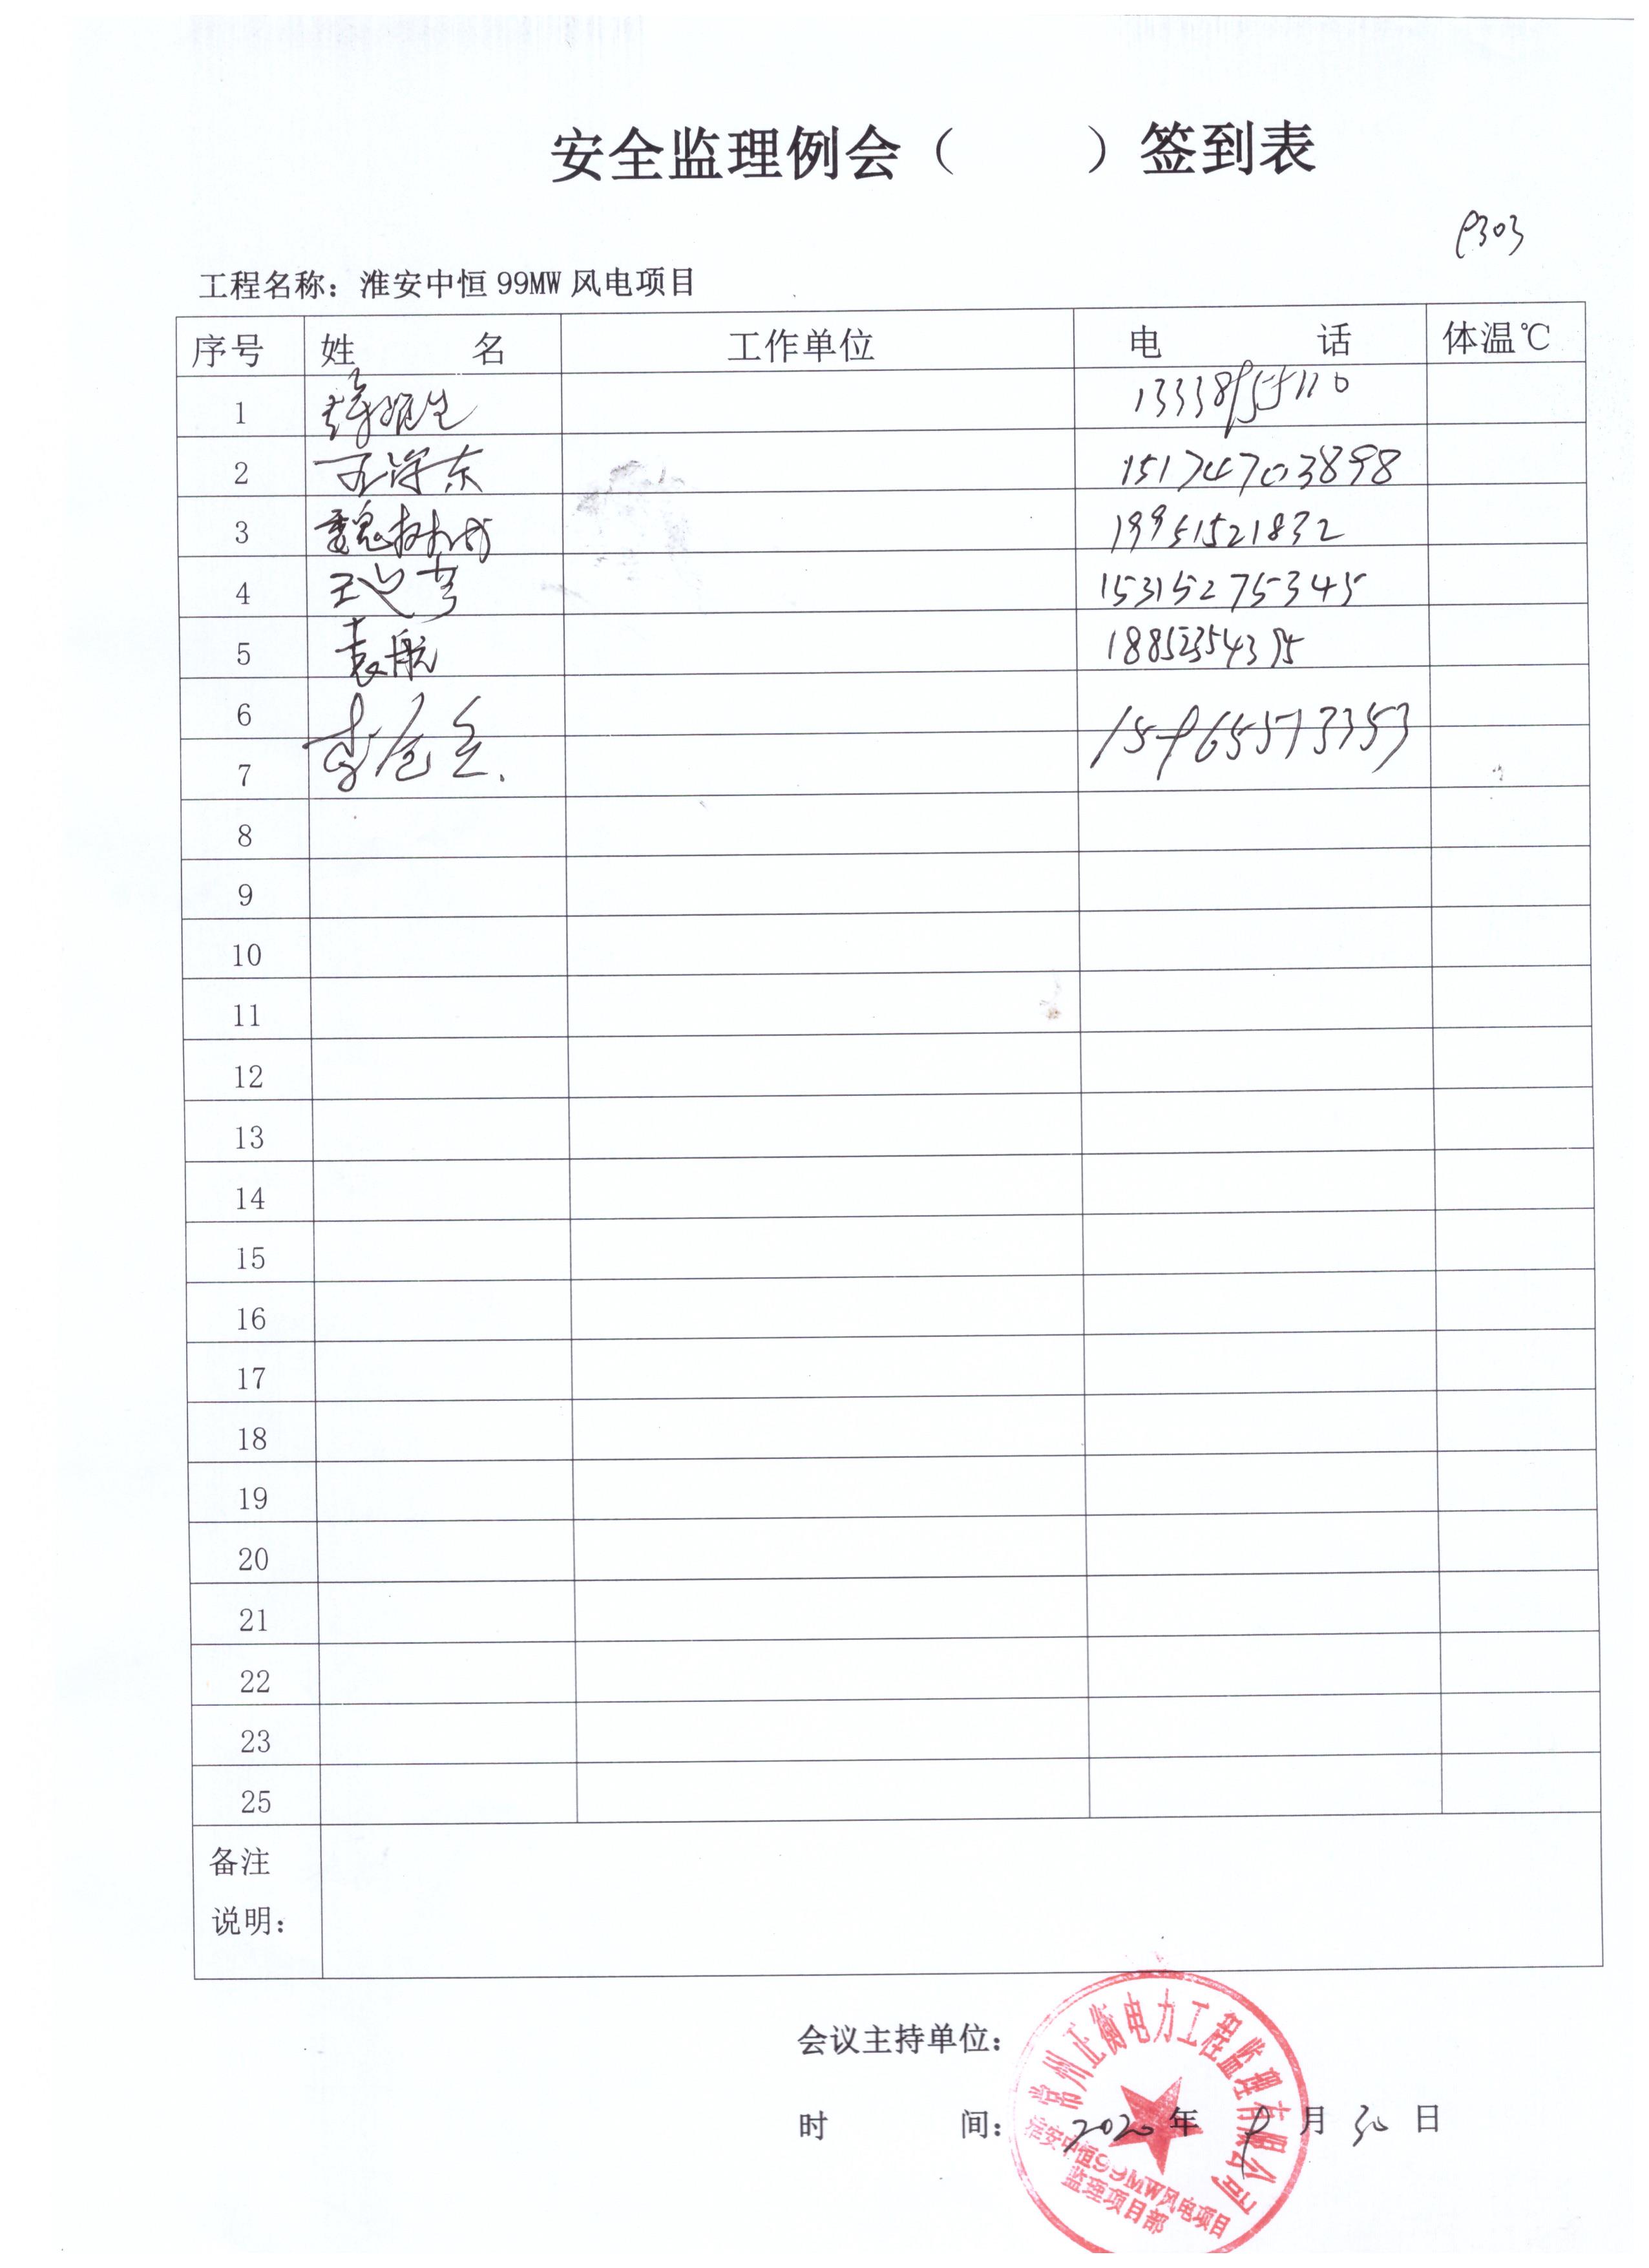 安全监理例会（ ）签到表
P303
工程名称：淮安中恒99MW风电项目
序号 姓 名 工作单位 电 话 体温℃
1 13338955110
2 王海东 15174703898
3 魏 19951521832
4 王 15315275345
5 袁航 18852354395
6 李
7
8
9
10
11
12
13
14
15
16
17
18
19
20
21
22
23
25
备注
说明：
会议主持单位：
时 间： 2020年9月30日
常州正衡电力工程监理有限公司
淮安中恒99MW风电项目
监理项目部